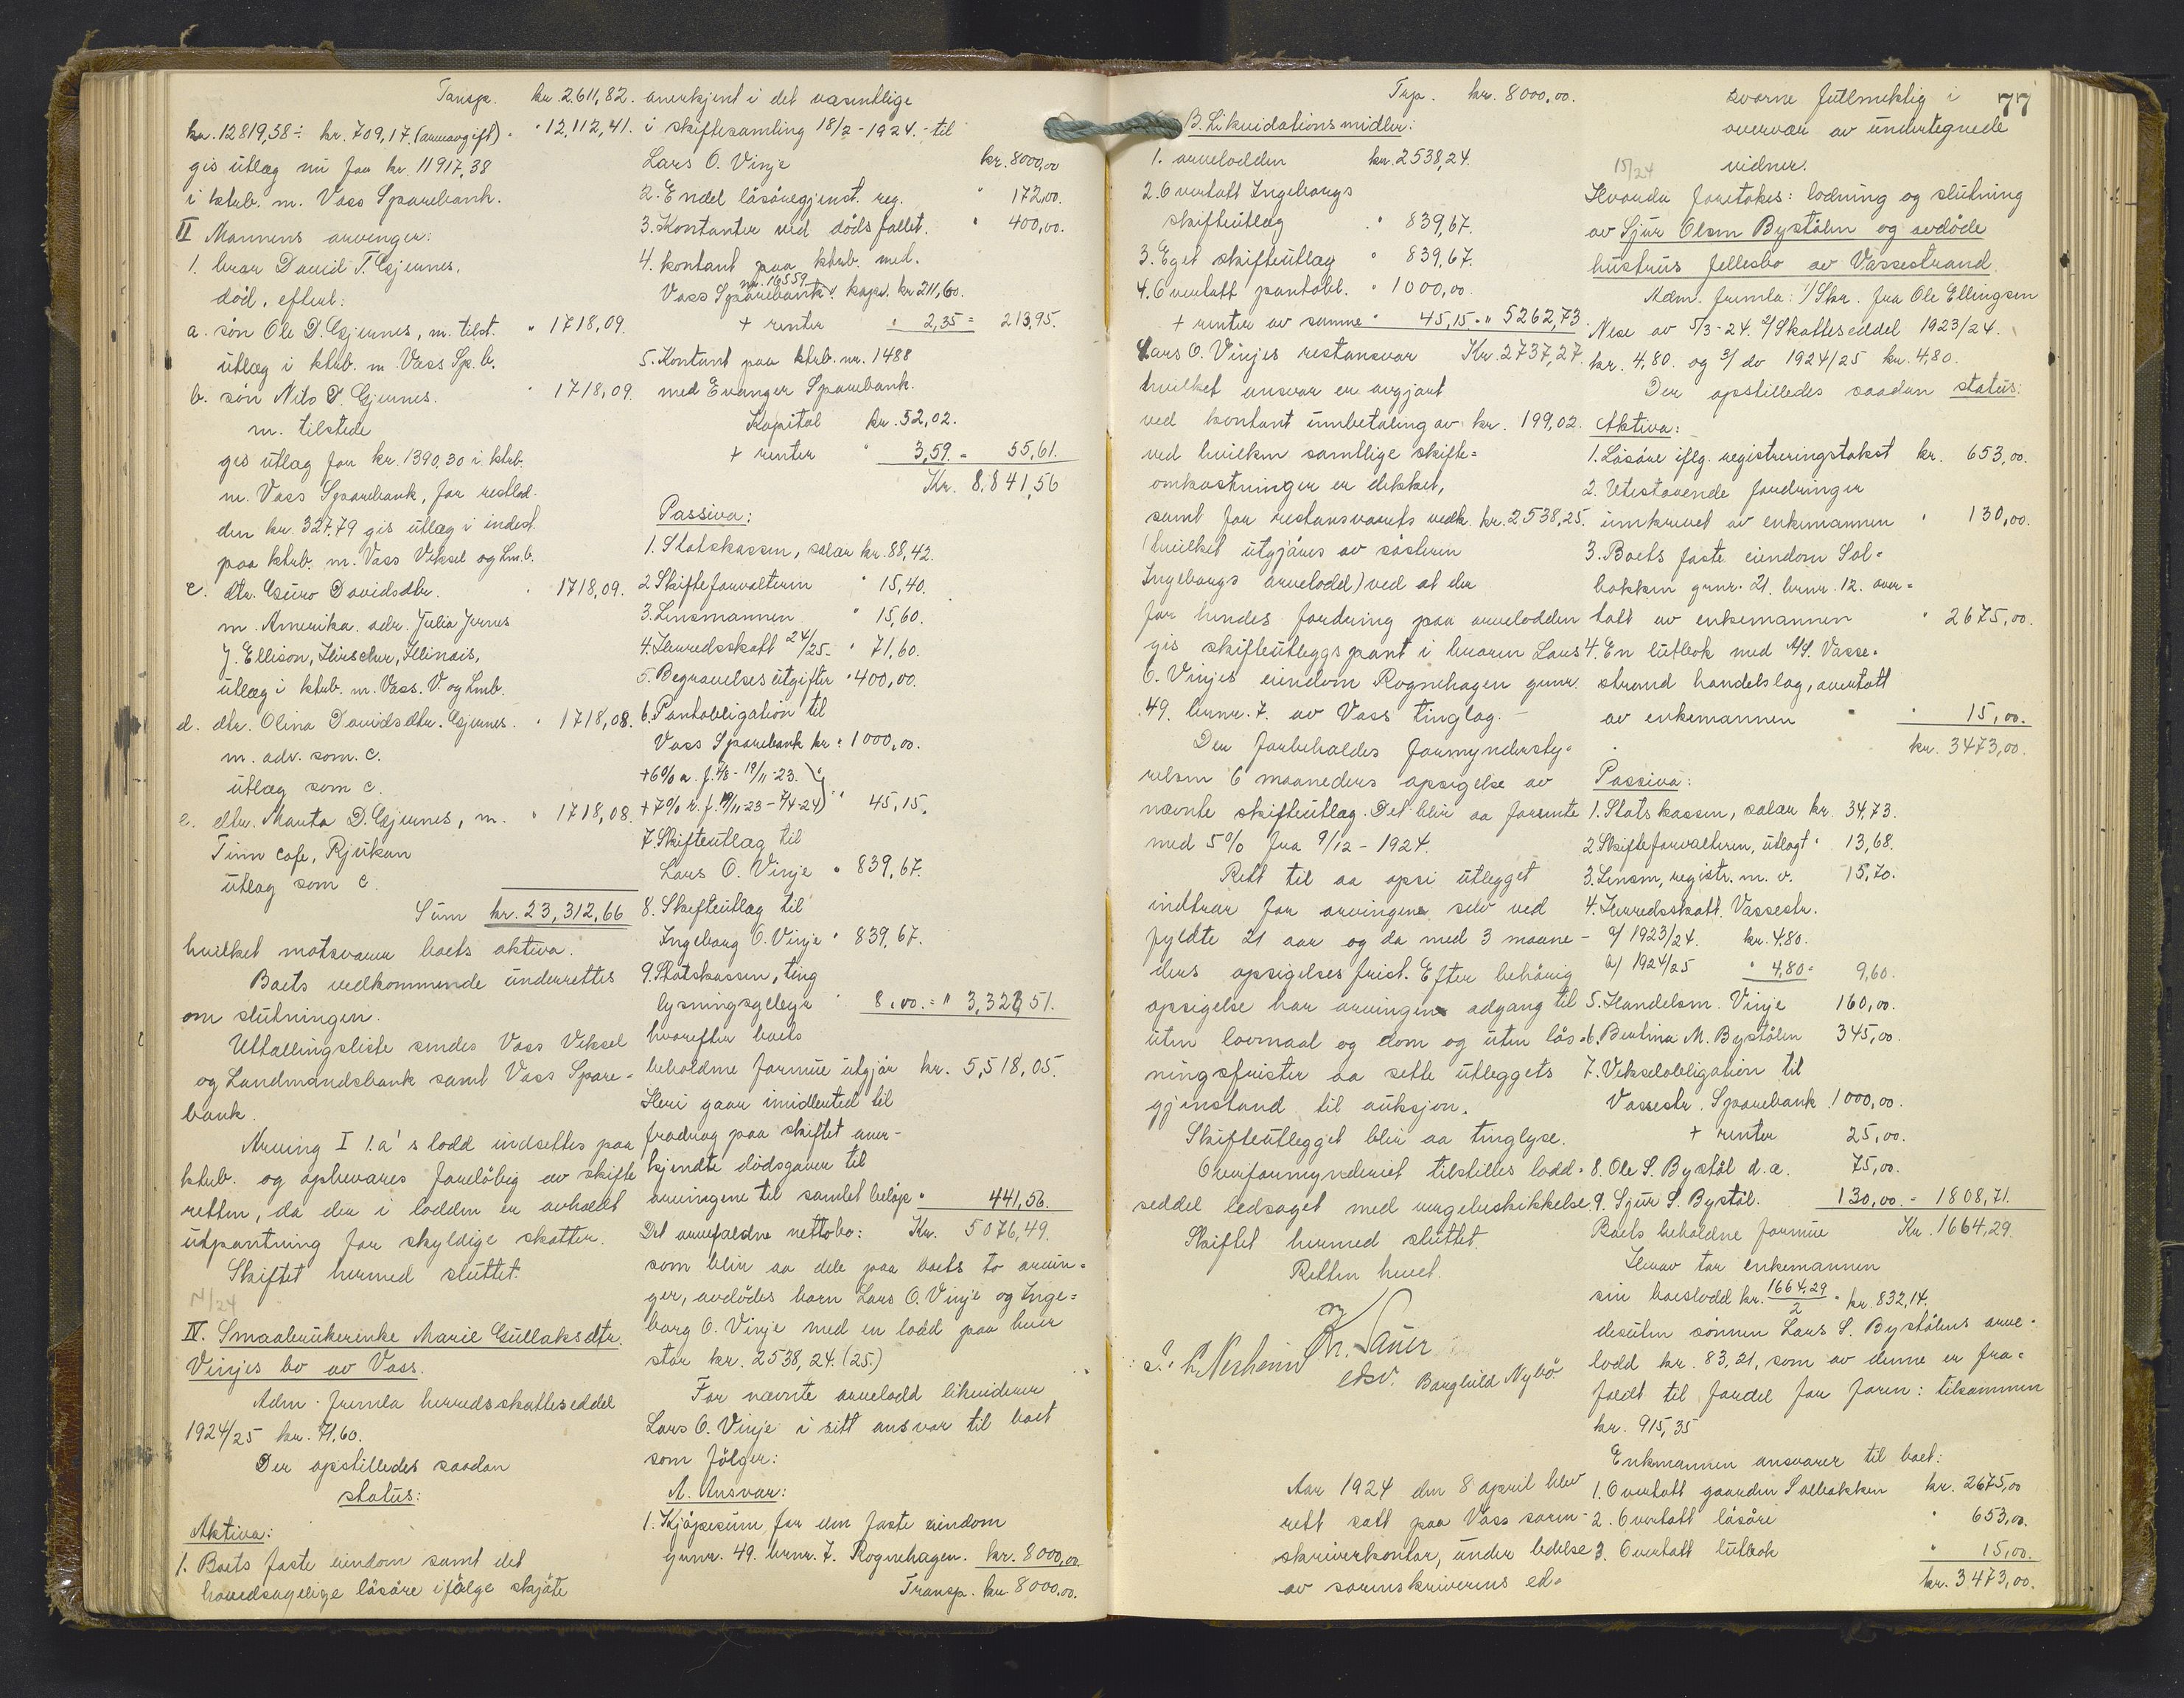 Transp. kr. 2.611,82.
kr. 12819,58 ÷ kr. 709,17 (arveavgift) " " 12,112,41.
gis utlæg nu for kr. 11917,38
i ktrb. m. Voss Sparebank.
II Mannens arvinger:
1. bror David T. Gjernes,
død, efterl:
a. søn Ole D. Gjernes, m. tilst. " 1718,09.
utlæg i ktrb. m. Voss Sp. b.
b. søn Nils D. Gjernes. " 1718,09.
m. tilstede
gis utlæg for kr. 1390,30 i ktrb.
m. Voss Sparebank, for restlod-
den kr. 327.79 gis utlæg i indest.
paa ktrb. m. Voss Veksel og Lm.b.
c. dtr. Guro Davidsdtr. " 1718,09.
m. Amerika. adr. Julia Jernes
J. Ellison, Hirscher, Illinois,
utlæg i ktrb. m. Voss. V. og Lmb.
d. dtr. Olina Davidsdtr. Gjernes. " 1718,08.
m. adr. som c.
utlæg som c.
e. dtr. Marta D. Gjernes, m. " 1718,08.
Tinn Cafe, Rjukan
utlæg som c.
Sum kr. 23,312,66
hvilket motsvarer boets aktiva.
Boets vedkommende underrettes
om slutningen.
Uttællingsliste sendes Voss Veksel
og Landmandsbank samt Voss Spare-
bank.
Arving I 1.a's lodd indsettes paa
ktrb. og opbevares foreløbig av skifte
retten, da der i lodden er avholdt
utpantning for skyldige skatter.
Skiftet hermed sluttet.
IV. Smaabrukerenke Marie Gullaksdtr.
Vinjes bo av Voss.
Adm. fremla herredsskatteseddel
1924/25 kr. 71.60.
Der opstilledes saadan
status:
Aktiva:
1. Boets faste eiendom samt det
hovedsagelige løsøre ifølge skjøte
anerkjent i det væsentlige
i skiftesamling 18/2-1924.- til
Lars O. Vinje kr. 8000,00
2. Endel løsøregjenst. reg. " 172,00.
3. Kontanter ved dødsfallet. " 400,00.
4. kontant paa ktrb. med.
nr. 16559
Voss Sparebank. kap. kr 211,60.
+ renter " 2,35 = 213,95.
5. Kontant paa ktrb. nr. 1488
med Evanger Sparebank.
Kapital kr. 52,02.
+ renter " 3,59. = 55,61.
Kr. 8,841,56
Passiva:
1. Statskassen, salær kr. 88,42.
2 Skifteforvalteren " 15,40.
3. Lensmannen " 15,60.
4. Herredsskatt 24/25. " 71,60.
5. Begravelsesutgifter " 400,00.
6. Pantobligation til
Voss Sparebank kr. 1000,00.
+6% r. f. 4/8 - 19/11-23.
+7% r. f. 19/11-23 - 7/4-24 " 45,15.
7. Skifteutlæg til
Lars O. Vinje " 839,67.
8. Skifteutlæg til
Ingeborg O. Vinje " 839,67.
9. Statskassen, ting
lysningsgebyr " 8,00. = " 3,323,51.
hvorefter boets
beholdne formue utgjør kr. 5,518,05.
Heri gaar imidlertid til
fradrag paa skiftet aner-
kjendte dødsgaver til
arvingene til samlet beløp " 441,56.
Det arvefaldne nettobo: Kr. 5076,49.
som blir aa dele paa boets to arvin-
ger, avdødes barn Lars O. Vinje og Inge=
borg O. Vinje med en lodd paa hver
stor kr. 2538,24. (25.)
For nævnte arvelodd likviderer
Lars O. Vinje i sitt ansvar til boet
som følger:
A. Ansvar:
1. Kjøpesum for den faste eiendom
gnr. 49. brnr. 7. Rognehagen. kr. 8000,00.
Transp. kr. 8000,00.
Trp. kr. 8000,00.
B. Likvidationsmidler:
1. arvelodden kr. 2538,24.
2. Overtatt Ingeborgs
skifteutlæg " 839,67.
3. Eget skifteutlæg " 839,67.
4. Overtatt pantobl. " 1000,00.
+ renter av samme " 45,15. = " 5262,73
Lars O. Vinjes restansvar Kr. 2737,27.
hvilket ansvar er avgjort
ved kontant innbetaling av kr. 199,02.
ved hvilken samtlige skifte=
omkostninger er dekket,
samt for restansvarets vedk. kr. 2538,25.
(hvilket utgjøres av søsteren
Ingeborgs arvelodd) ved at der
for hendes fordring paa arvelodden
gis skifteutleggspant i broren Lars
O. Vinjes eiendom Rognehagen gnr.
49. brnr. 7. av Voss tinglag. -
Der forbeholdes formyndersty-
relsen 6 maaneders opsigelse av
nævnte skifteutlæg. Det blir aa forrente
med 5% fra 9/12 - 1924.
Rett til aa opsi utlegget
indtrær for arvingene selv ved
fyldte 21 aar og da med 3 maane-
ders opsigelsesfrist. Efter behørig
opsigelse har arvingen adgang til
uten lovmaal og dom og uten løs-
ningsfrister aa sette utleggets
gjenstand til auksjon.
Skifteutlegget blir aa tinglyse.
Overformynderiet tilstilles lodd-
seddel ledsaget med vergebeskikkelse.
Skiftet hermed sluttet.
Retten hevet.
Chr. Sauer
edsv.
Borghild Nybø
Aar 1924 den 8 april blev
rett satt paa Voss soren-
skriverkontor, under ledelse
av sorenskriverens ed-
77
svorne fullmektig i
overvær av undertegnede
15/24
vidner.
Hvorda foretokes: lodning og slutning
av Sjur Olsen Bystølen og avdøde
hustrus fellesbo av Vossestrand.
Adm. fremla: 1/ Skr. fra Ole Ellingsen
Nese av 5/3-24. 2/ Skatteseddel 1923/24.
kr. 4,80. og 3/ do 1924/25 kr. 4,80.
Der opstilledes saadan status:
Aktiva:
1. Løsøre iflg. registreringstakst kr. 653,00.
2. Utestaaende fordringer
innkrevet av enkemannen " 130,00.
3. Boets faste eiendom Sol-
bakken gnr. 21. brnr. 12. over-
tatt av enkemannen " 2675,00.
4. En lutbok med A/S. Vosse-
strand handelslag, overtatt
av enkemannen " " 15,00.
kr. 3473,00.
Passiva:
1. Statskassen, salær kr. 34,73.
2 Skifteforvalteren, utlagt " 13,68.
3. Lensm, registr. m. v. 15,70.
4. Herredsskatt. Vossestr.
a/ 1923/24. kr. 4.80.
b/ 1924/25 " 4,80 = 9,60.
5. Handelsm. Vinje 160,00.
6. Bertina M. Bystølen 345,00.
7. Vekselobligation til
Vossestr. Sparebank 1000,00.
+ renter 25,00.
8. Ole S. Bystøl d.a. 75,00.
9. Sjur S. Bystøl. 130,00. = 1808,71.
Boets beholdne formue Kr. 1664,29.
Herav tar enkemannen
sin boeslodd kr. 1664,29/2 = kr. 832,14.
desuten sønnen Lars S. Bystølens arve-
lodd kr. 83,21, som av denne er fra-
faldt til fordel for faren: tilsammen
kr. 915,35
Enkemannen ansvarer til boet:
1. Overtatt gaarden Solbakken kr. 2675,00
2. Overtatt løsøre " 653,00.
3. Overtatt lutbok " 15,00.
kr. 3473,00.